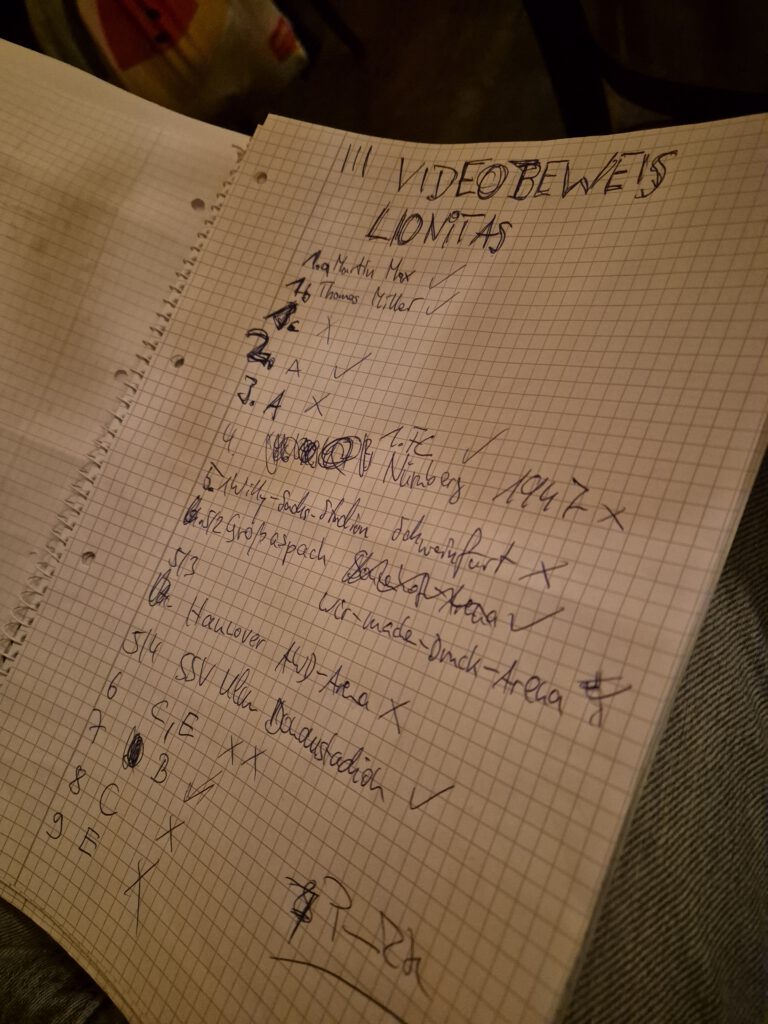 III VIDEOBEWEIS
LIONITAS
1.a Martin Max ✓
1b Thomas Miller ✓
1c X
2. A ✓
3. A X
4 1. FC Nürnberg ✓ 1947 X
5.1 Willy-Sachs-Stadion Schweinfurt X
5/2 Großaspach ✓
wir-made-Druck-Arena
5/3 Hannover AWD-Arena X
5/4 SSV Ulm Donaustadion ✓
6 C, E XX
7 B ✓
8 C X
9 E X